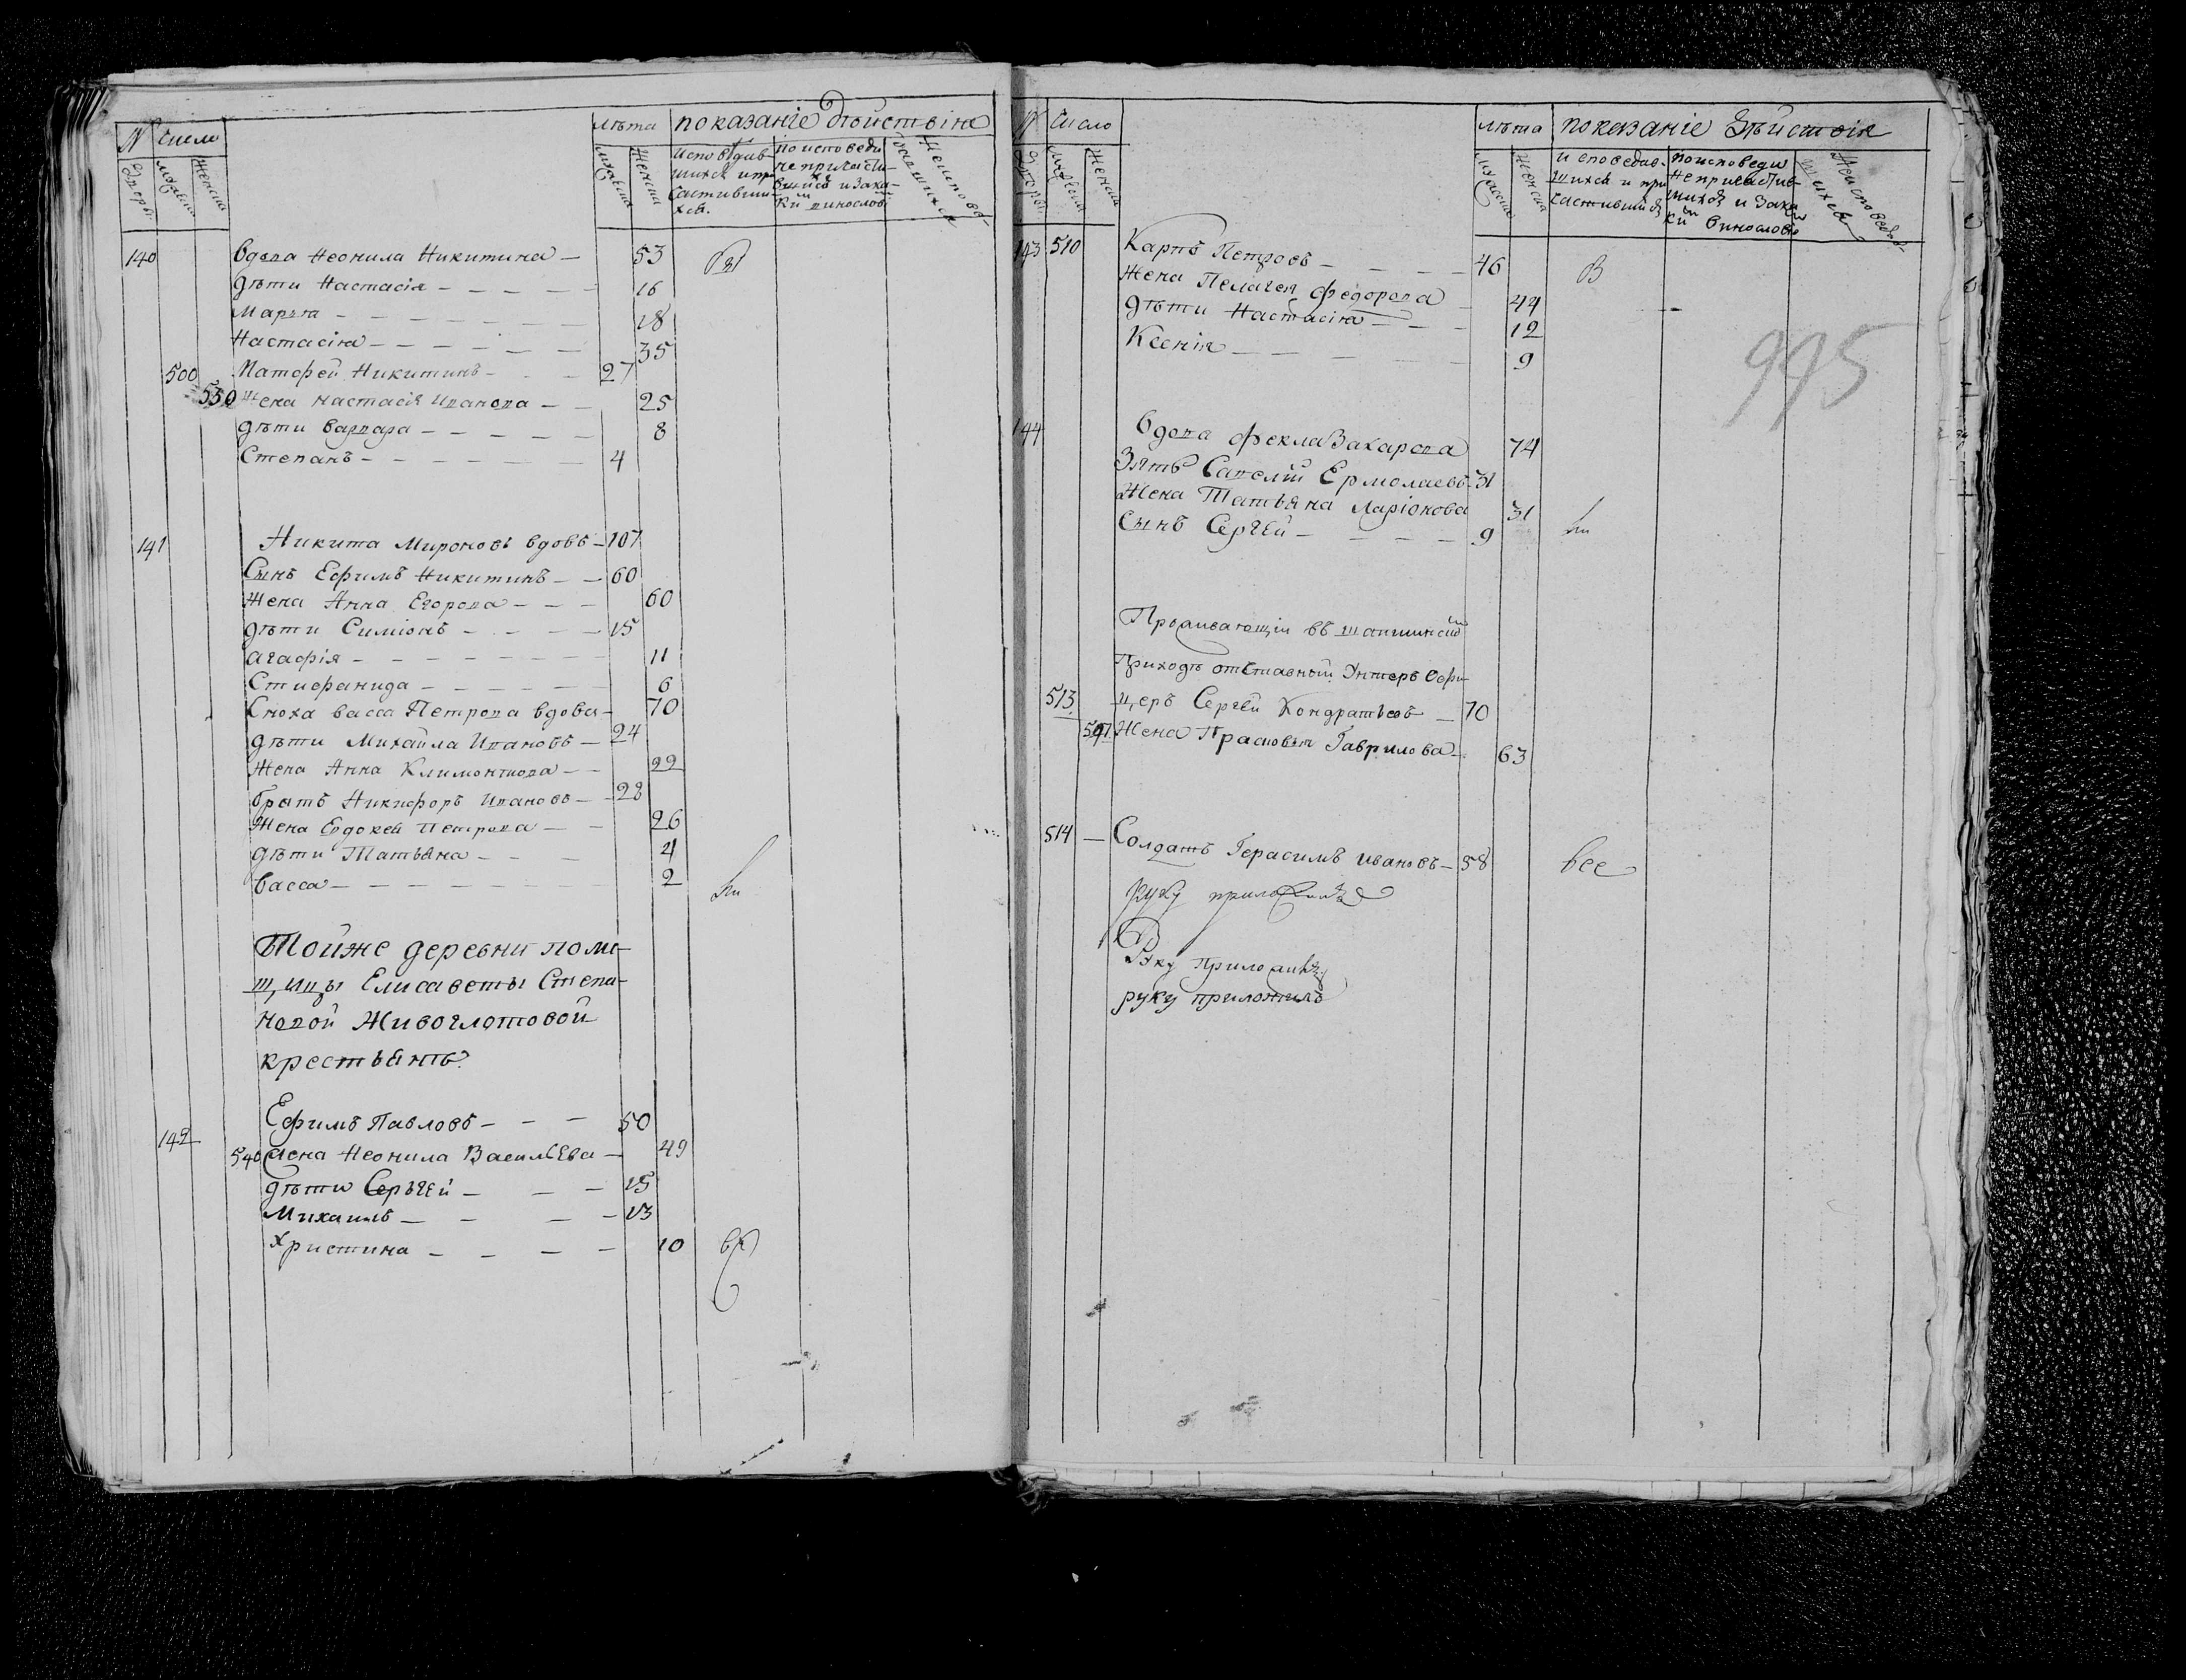 N Число лѣта показаніе дѣйствія
Дворы мужеска женска мужеска женска
исповѣдав- шихся и при- частивших- ся.
по исповеди непричасти- вшихся и зака- кимъ винослов.
Неисповѣ- давшихся
140 Вдова Неонила Никитина — 53
дѣти Настасія — 16
Марѳа — 18
Настасія — 35
500 Матфей Никитинъ — 27
530 Жена Настасія Иванова — 25
дѣти Варвара — 8
Степанъ — 4
141 Никита Мироновъ вдовъ — 107
Сынъ Ефимъ Никитинъ — 60
Жена Анна Егорова — 60
дѣти Симіонъ — 15
Агафія — 11
Стиефанида — 6
Сноха Васса Петрова вдова — 70
дѣти Михаила Ивановъ — 24
Жена Анна Климонтиова — 22
братъ Никифоръ Ивановъ — 28
Жена Евдокея Петрова — 26
дѣти Татьяна — 4
Васса — 2
Тойже деревни поме-
щицы Елисаветы Степа-
новой Живоглотовой
крестьянъ
142 Ефимъ Павловъ — 50
540 жена Неонила Васильева — 49
дѣти Сергѣй — 15
Михаилъ — 13
Христина — 10
N Число лѣта показаніе дѣйствія
Дворы мужеска женска мужеска женска
исповедав- шихся и при частившихся
по исповеди непричастив- шихся и зака кимъ винословіе
Неисповедав- шихся
143 510 Карпъ Петровъ — 46 В
Жена Пелагея Федорова — 44
дѣти Настасія — 12
Ксенія — 9
995
144 Вдова Фекла Захарова 74
Зять Савелій Ермолаевъ — 31
Жена Татьяна Ларіонова 31
Сынъ Сергѣй — 9
Проживающіи въ
Приходѣ отставный Унтеръ Офи-
513 церъ Сергѣй Кондратьевъ — 70
541 Жена Прасковья Гаврилова — 63
514 — Солдатъ Герасимъ Ивановъ — 58 все
руку приложилъ
Руку Приложилъ
руку приложилъ